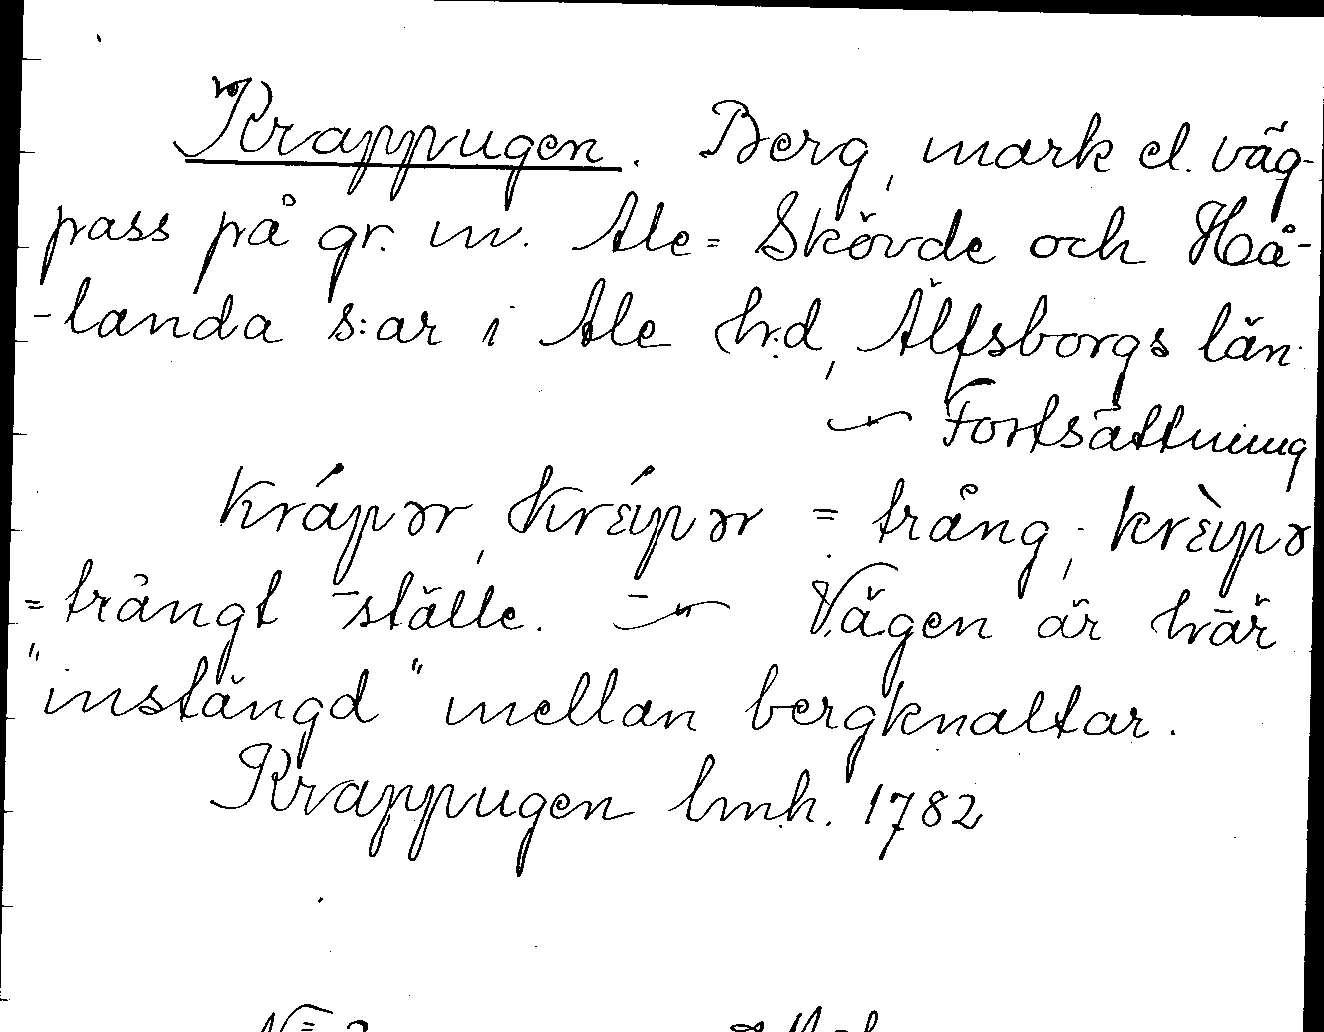 Krappugen. Berg, mark el. väg-
pass på gr. m. Ale-Skövde och Hå-
-landa s:ar i Ale h:d, Älfsborgs län.
Fortsättning
krápər, krέ́pər = trång; krὲpə
= trångt ställe. Vägen är här
"instängd" mellan bergknaltar.
Krappugen lmh. 1782